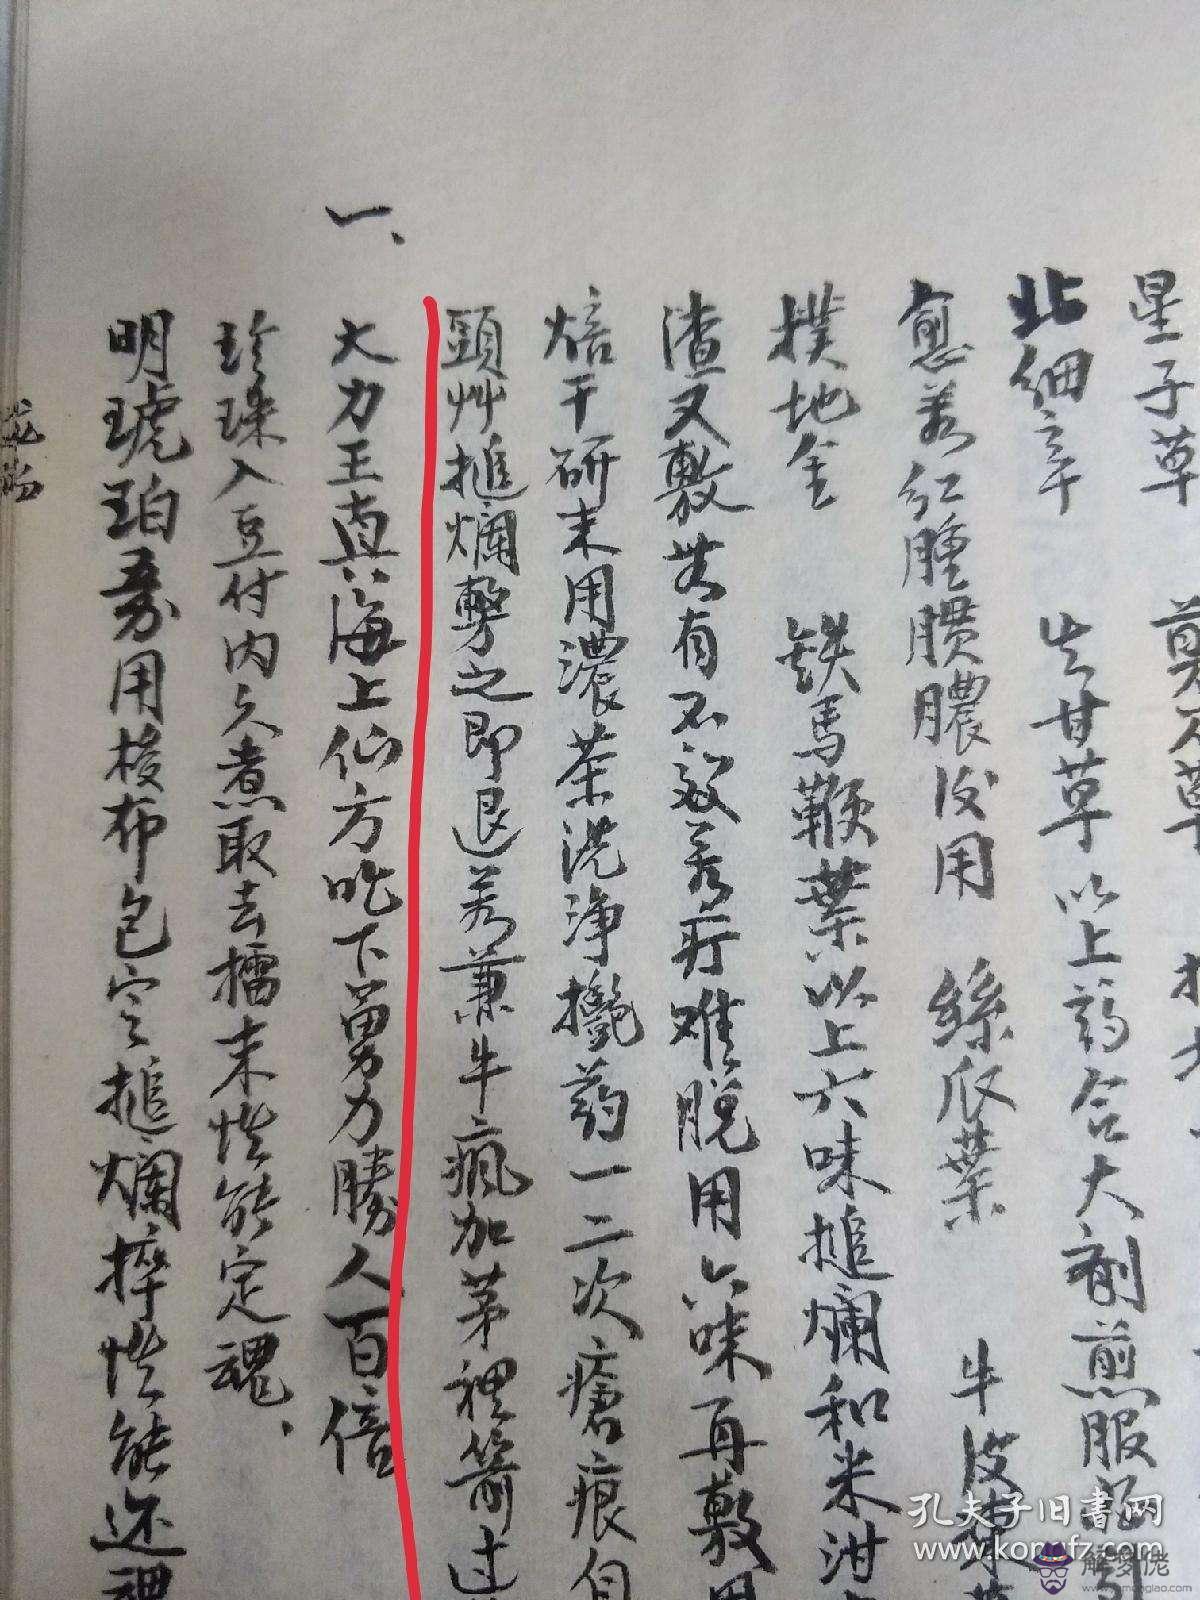 星子草
北细辛 生甘草以上药合大剂煎服
愈若红腫膿後用 絲瓜葉 牛皮凍
撲地金 鉄馬鞭葉以上六味搥爛和米泔
渣又敷若有不效若疔难脱用六味再敷
焙干研末用濃茶洗净搽药一二次瘡痕自
頭艸搥爛之即退若兼牛瘋加茅裡箭过
一、大力王真海上仙方吃下勇力勝人百倍
珍珠入豆付内久煮取去擂末性能定魂、
明琥珀用梭布包定搥爛性能还
孔夫子旧书网
www.kongfz.com
解梦佬
jiemenglao.com